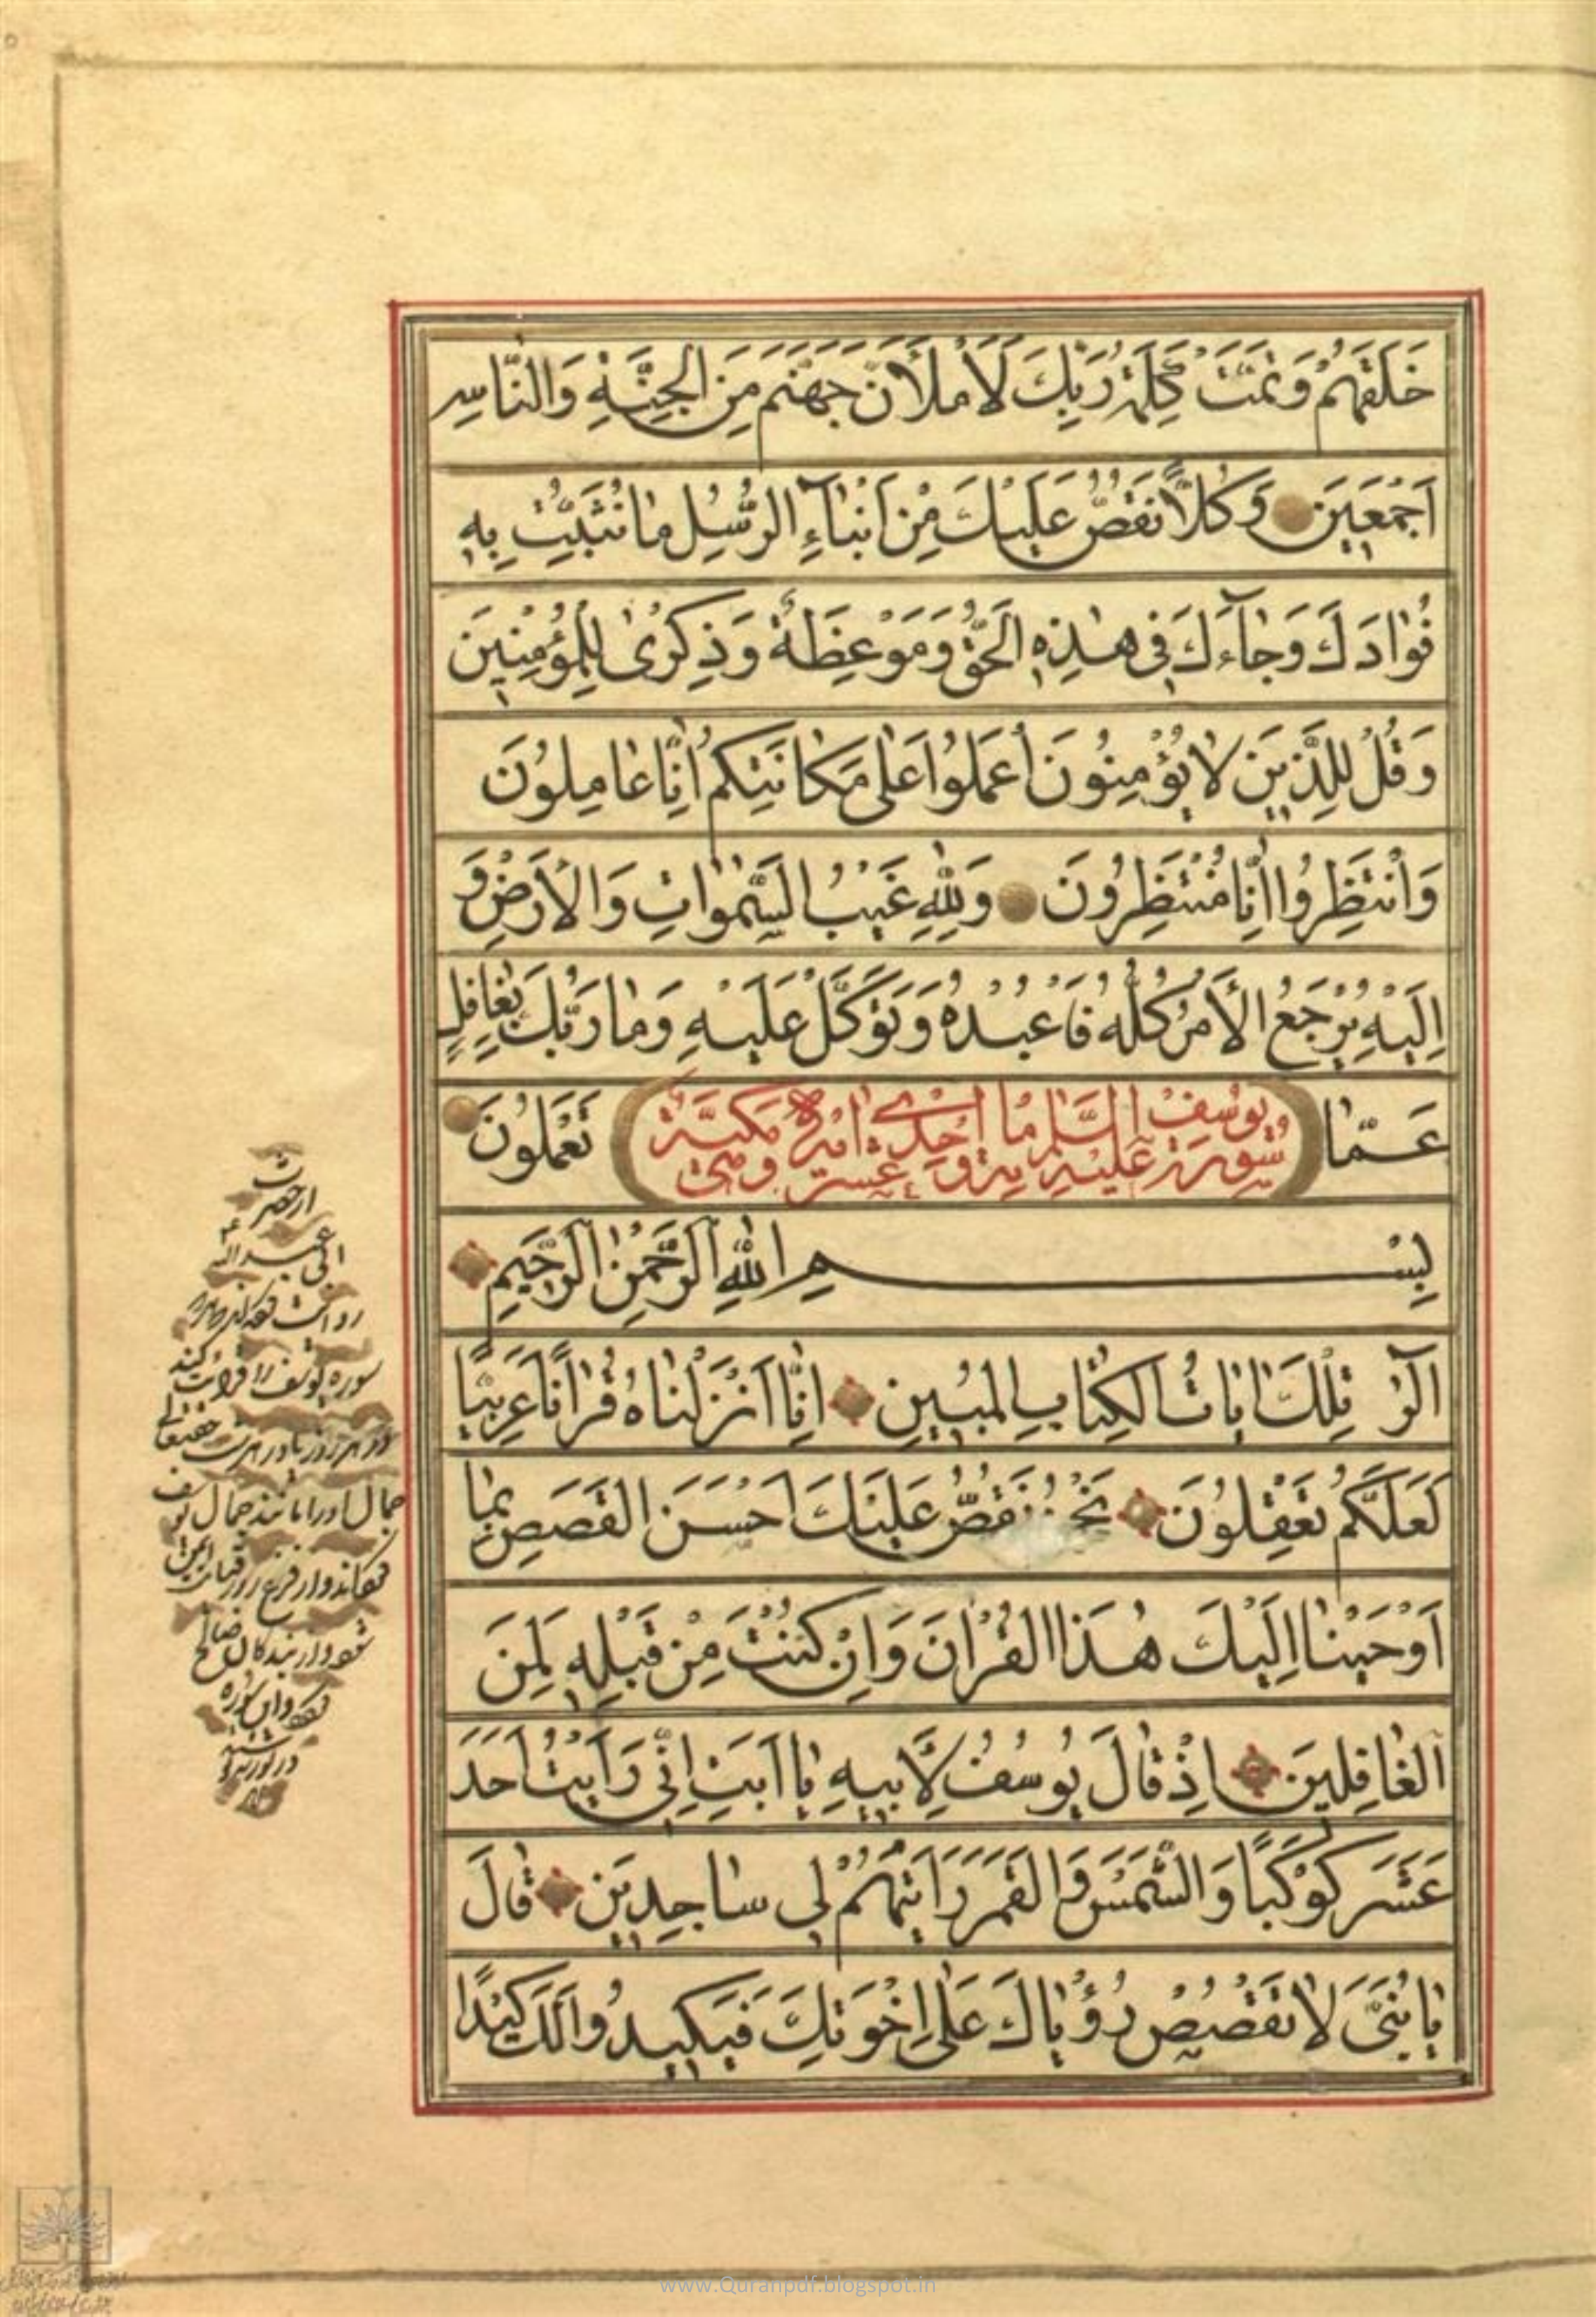 خَلَقَهُمْ وَتَمَّتْ كَلِمَةُ رَبِّكَ لَأَمْلَأَنَّ جَهَنَّمَ مِنَ الْجِنَّةِ وَالنَّاسِ
اَجْمَعِينَ وَكُلًّا نَقُصُّ عَلَيْكَ مِنْ اَنْبَآءِ الرُّسُلِ مَا نُثَبِّتُ بِهِ
فُؤادَكَ وَجَآءَكَ فِي هٰذِهِ الْحَقُّ وَمَوْعِظَةٌ وَذِكْرٰى لِلْمُؤْمِنِينَ
وَقُلْ لِلَّذِينَ لا يُؤْمِنُونَ اعْمَلُوا عَلٰى مَكَانَتِكُمْ اِنَّا عَامِلُونَ
وَانْتَظِرُوا اِنَّا مُنْتَظِرُونَ وَلِلّٰهِ غَيْبُ السَّمٰوَاتِ وَالْاَرْضِ وَ
اِلَيْهِ يُرْجَعُ الْاَمْرُ كُلُّهُ فَاعْبُدْهُ وَتَوَكَّلْ عَلَيْهِ وَمَا رَبُّكَ بِغَافِلٍ
عَمَّا سورة يوسف عليه السلم مائة واحدى عشر اية وهى مكية تَعْمَلُونَ
بِسْمِ اللّٰهِ الرَّحْمٰنِ الرَّحِيمِ
الٓرٰ تِلْكَ اٰيَاتُ الْكِتَابِ الْمُبِينِ اِنَّا اَنْزَلْنَاهُ قُرْاٰنًا عَرَبِيًّا
لَعَلَّكُمْ تَعْقِلُونَ نَحْنُ نَقُصُّ عَلَيْكَ اَحْسَنَ الْقَصَصِ بِمَا
اَوْحَيْنَا اِلَيْكَ هٰذَا الْقُرْاٰنَ وَاِنْ كُنْتَ مِنْ قَبْلِهِ لَمِنَ
الْغَافِلِينَ اِذْ قَالَ يُوسُفُ لِاَبِيهِ يَا اَبَتِ اِنِّي رَاَيْتُ اَحَدَ
عَشَرَ كَوْكَبًا وَالشَّمْسَ وَالْقَمَرَ رَاَيْتُهُمْ لِي سَاجِدِينَ قَالَ
يَا بُنَيَّ لَا تَقْصُصْ رُؤْيَاكَ عَلٰى اِخْوَتِكَ فَيَكِيدُوا لَكَ كَيْدًا
از حضرت
ابى عبد الله
سوره يوسف را قرائت كند
جمال او را مانند جمال يوسف
www.Quranpdf.blogspot.in